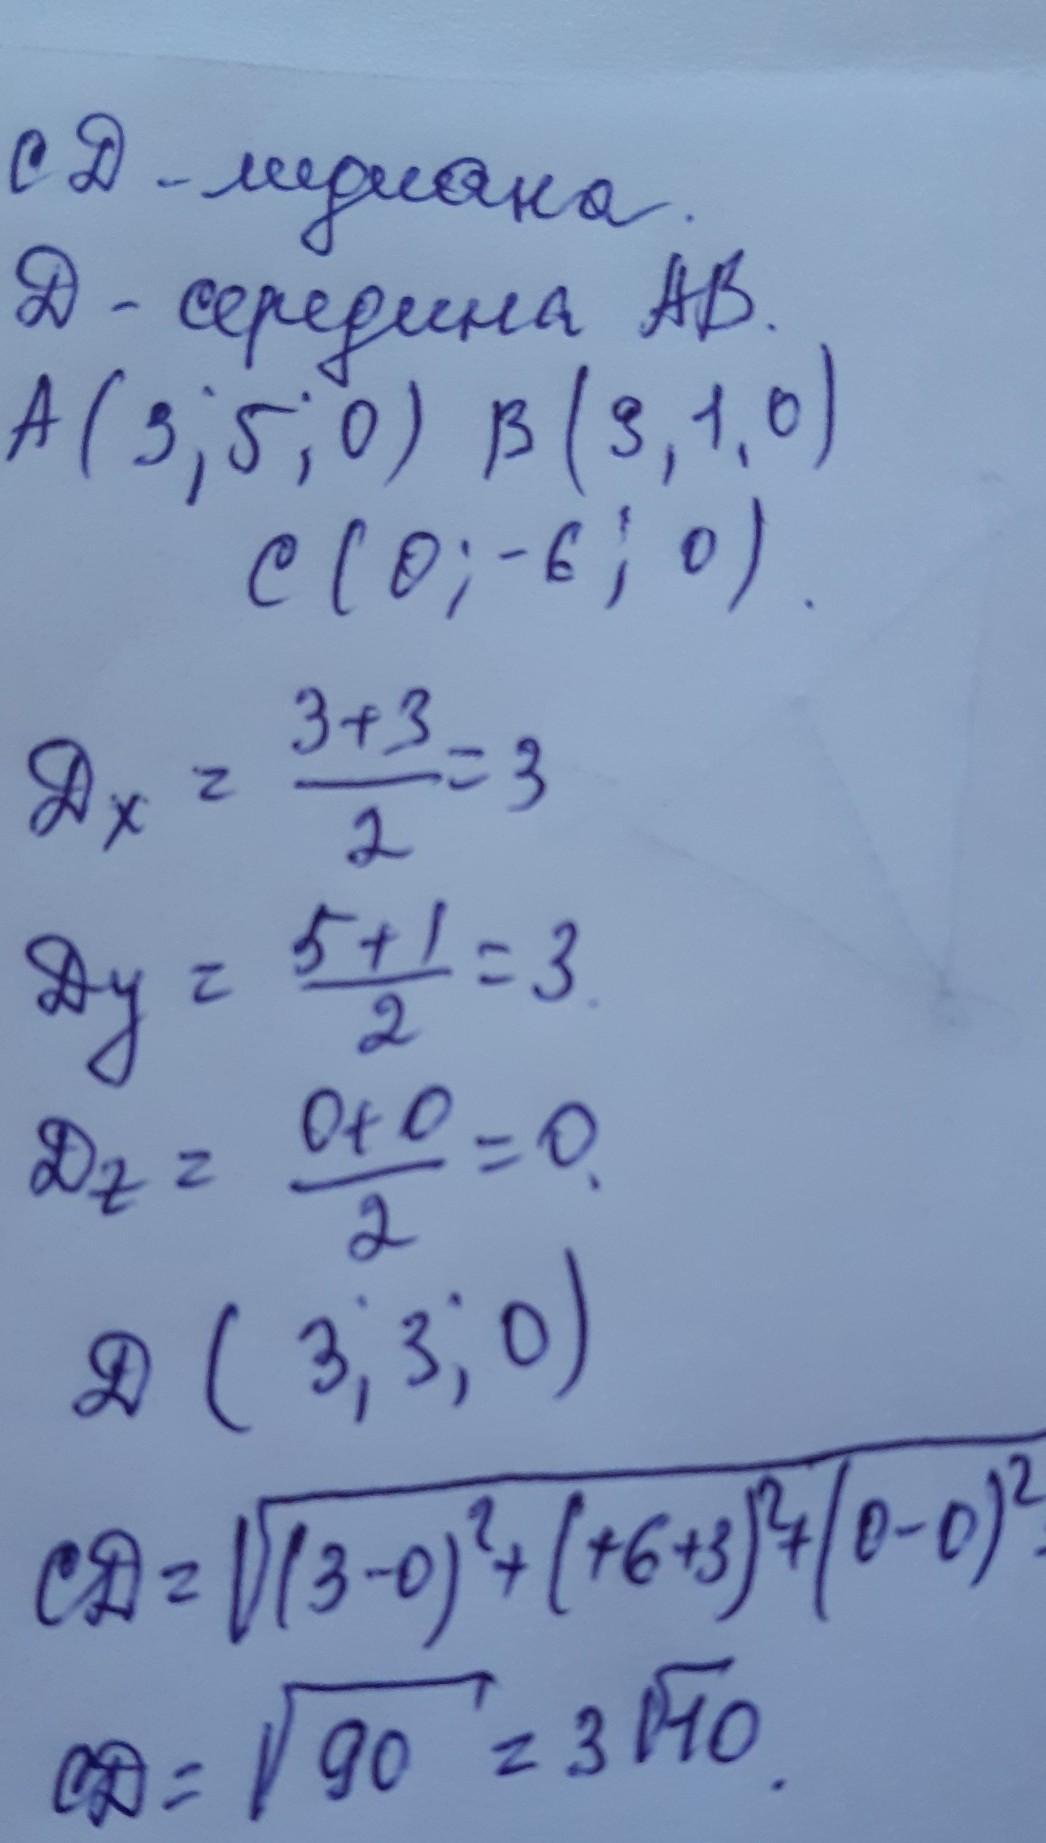 СД - медиана.
Д - середина АВ.
А(3;5;0) В(3,1,0)
С(0;-6;0).
Дx = (3+3)/2 = 3
Дy = (5+1)/2 = 3.
Дz = (0+0)/2 = 0.
Д (3;3;0)
СД = √((3-0)²+(+6+3)²+(0-0)²) =
СД = √90 = 3√10.